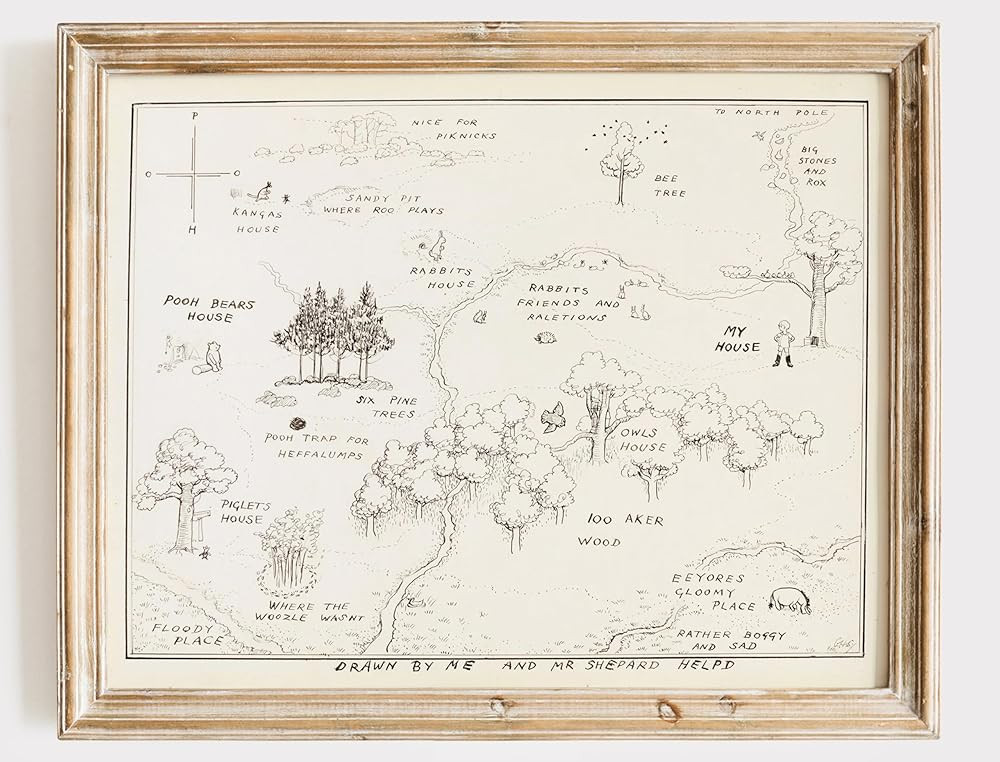 P
NICE FOR
PIKNICKS
TO NORTH POLE
BIG
STONES
AND
ROX
BEE
TREE
O
O
H
KANGAS
HOUSE
SANDY PIT
WHERE ROO PLAYS
RABBITS
HOUSE
RABBITS
FRIENDS AND
RALETIONS
POOH BEARS
HOUSE
MY
HOUSE
SIX PINE
TREES
POOH TRAP FOR
HEFFALUMPS
OWLS
HOUSE
PIGLETS
HOUSE
100 AKER
WOOD
WHERE THE
WOOZLE WASNT
FLOODY
PLACE
EEYORES
GLOOMY
PLACE
RATHER BOGGY
AND SAD
DRAWN BY ME AND MR SHEPARD HELPD